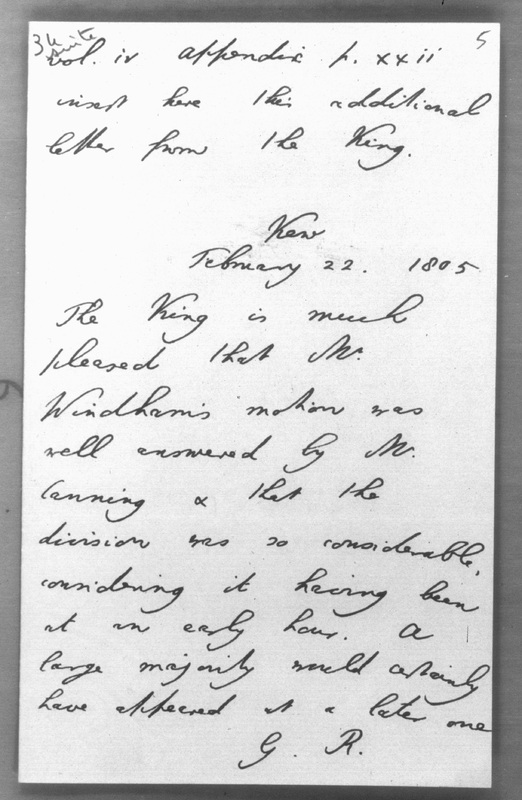 34 suite 5
vol. iv appendix p. xxii
insert here this additional
letter from the King.
Kew
February 22. 1805
The King is much
pleased that Mr.
Windham's motion was
well answered by Mr.
Canning & that the
division was so considerable,
considering it having been
at an early hour. A
large majority would certainly
have appeared at a later one
G. R.